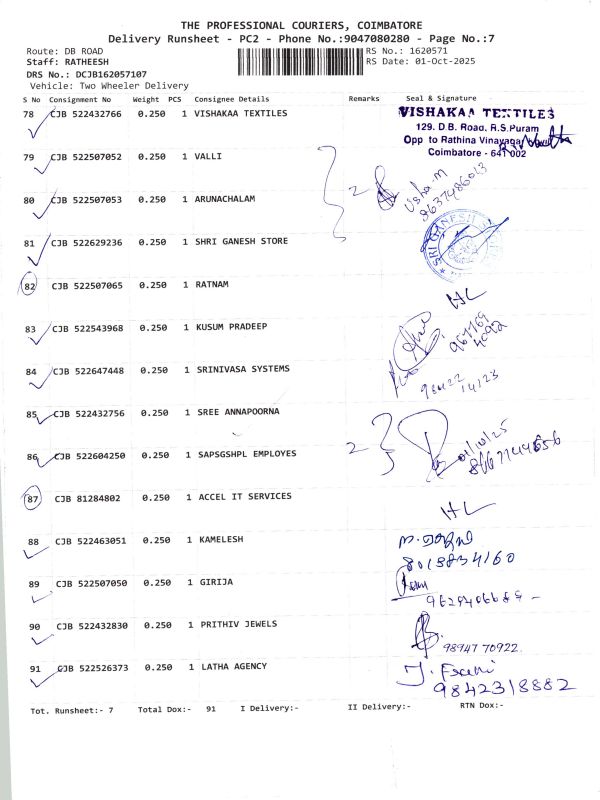 THE PROFESSIONAL COURIERS, COIMBATORE
Delivery Runsheet - PC2 - Phone No.:9047080280 - Page No.:7
Route: DB ROAD RS No.: 1620571
Staff: RATHEESH RS Date: 01-Oct-2025
DRS No.: DCJB162057107
Vehicle: Two Wheeler Delivery
S No Consignment No Weight PCS Consignee Details Remarks Seal & Signature
78 CJB 522432766 0.250 1 VISHAKAA TEXTILES
VISHAKAA TEXTILES
129. D.B. Road, R.S.Puram
Opp to Rathina Vinayagar
Coimbatore - 641 002
79 CJB 522507052 0.250 1 VALLI
2 Usha.M
80 CJB 522507053 0.250 1 ARUNACHALAM
81 CJB 522629236 0.250 1 SHRI GANESH STORE
SRI GANESH
82 CJB 522507065 0.250 1 RATNAM
HL
83 CJB 522543968 0.250 1 KUSUM PRADEEP
84 CJB 522647448 0.250 1 SRINIVASA SYSTEMS
98422 14123
85 CJB 522432756 0.250 1 SREE ANNAPOORNA
2 01/10/25
86 CJB 522604250 0.250 1 SAPSGSHPL EMPLOYES
87 CJB 81284802 0.250 1 ACCEL IT SERVICES
HL
88 CJB 522463051 0.250 1 KAMELESH
8015834160
89 CJB 522507050 0.250 1 GIRIJA
90 CJB 522432830 0.250 1 PRITHIV JEWELS
98947 70922
91 CJB 522526373 0.250 1 LATHA AGENCY
9842318882
Tot. Runsheet:- 7 Total Dox:- 91 I Delivery:- II Delivery:- RTN Dox:-